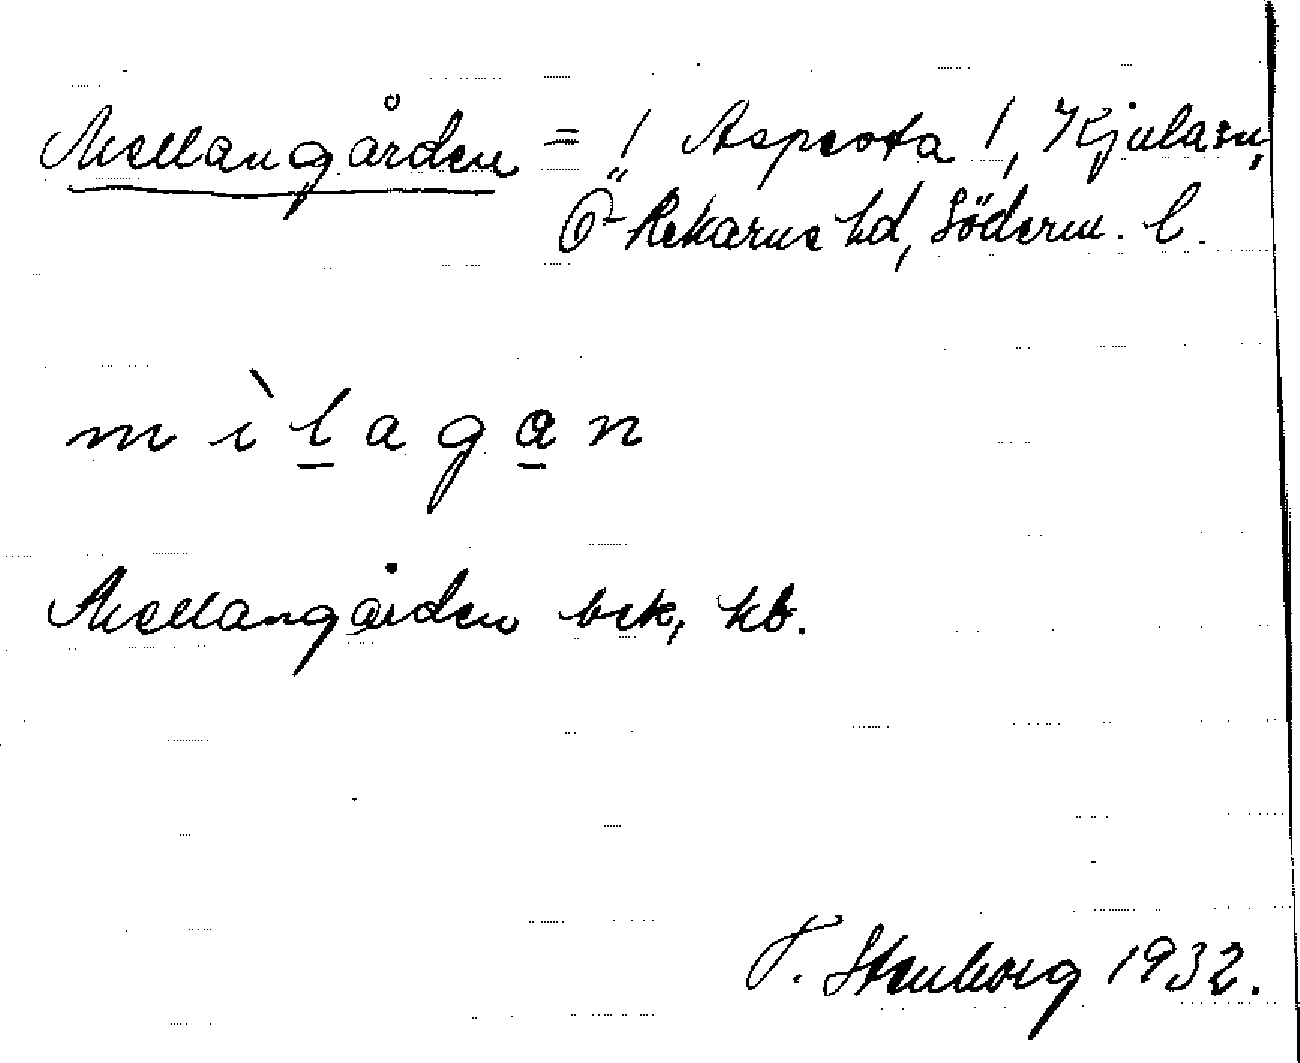 Mellangården = 1 Aspesta 1, Kjula sn,
Ö Rekarne hd, Söderm. l.
m ì l a g a n
Mellangården bek, kb.
T. Stenborg 1932.